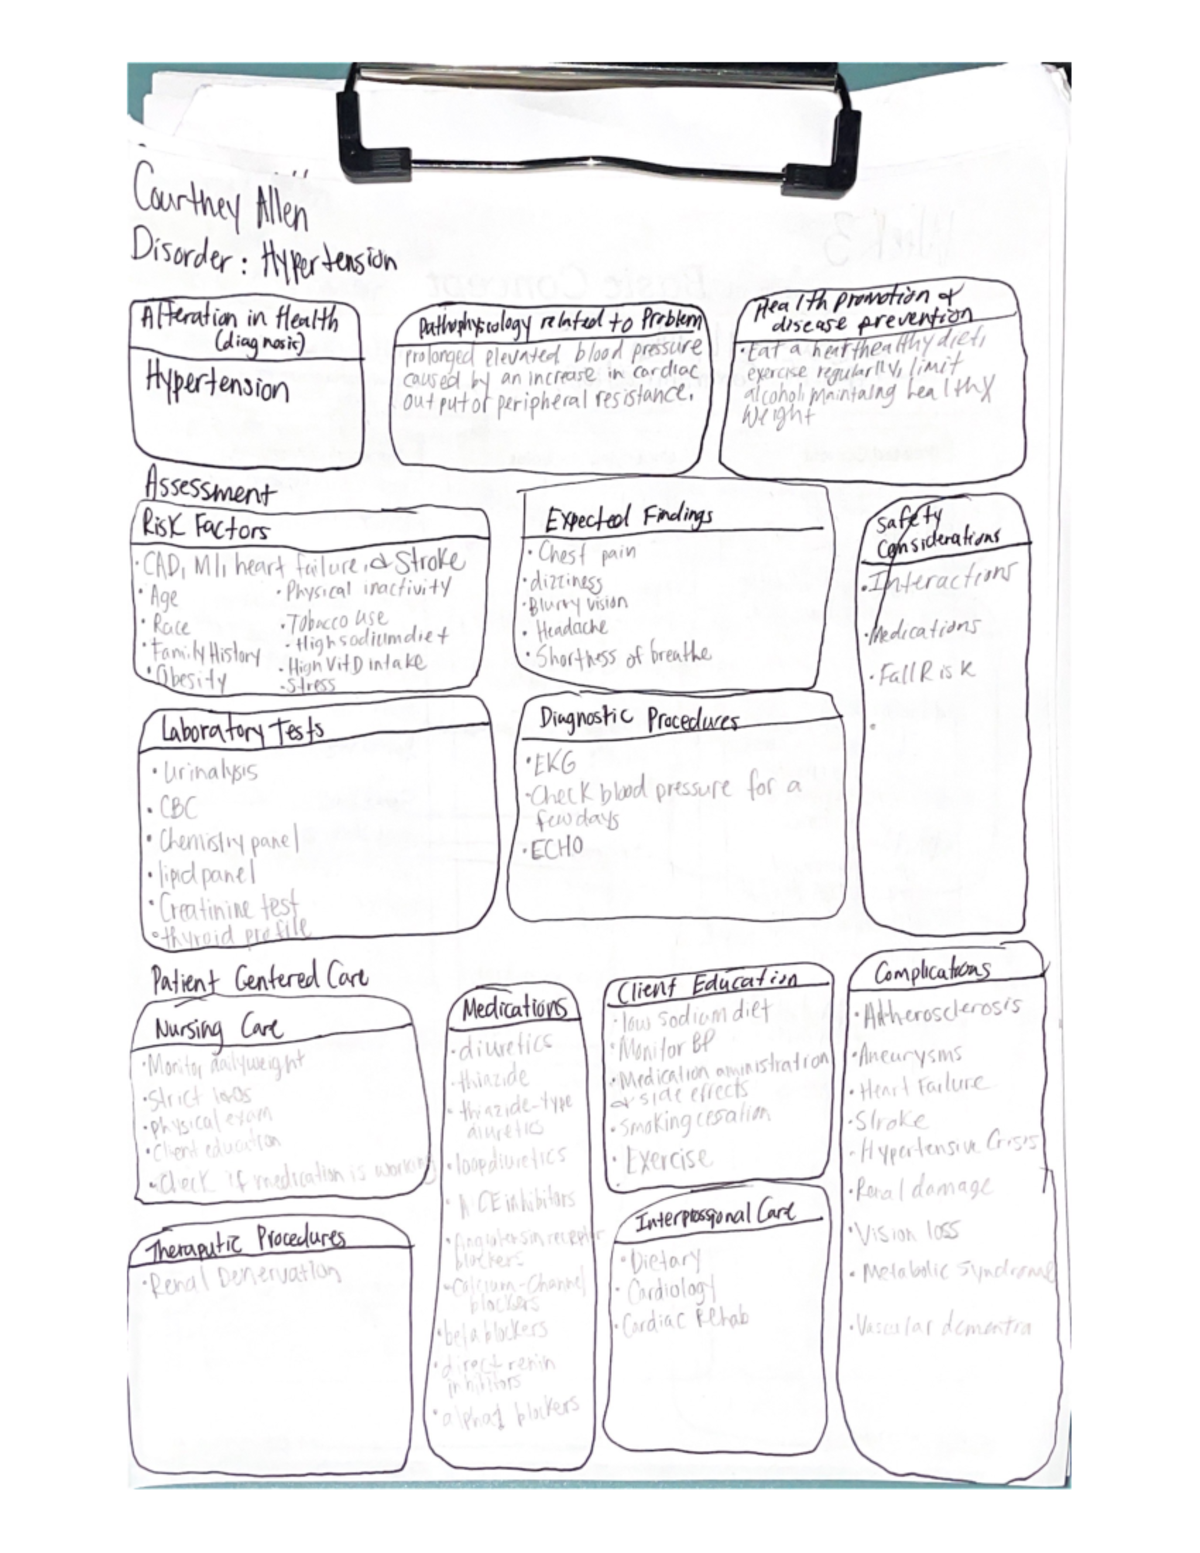 Courtney Allen
Disorder: Hypertension
Alteration in Health
(diagnosis)
Hypertension
Pathophysiology related to Problem
prolonged elevated blood pressure
caused by an increase in cardiac
output or peripheral resistance.
Health promotion &
disease prevention
• Eat a hearthealthy diet,
exercise regularlly, limit
alcohol, maintaing healthy
weight
Assessment
Risk Factors
• CAD, MI, heart failure, & Stroke
• Age
• Race
• Family History
• Obesity
• Physical inactivity
• Tobacco use
• High sodium diet
• High Vit D intake
• Stress
Expected Findings
• Chest pain
• dizziness
• Blurry vision
• Headache
• Shortness of breathe
Safety
Considerations
• Interactions
• Medications
• Fall Risk
Laboratory Tests
• Urinalysis
• CBC
• Chemistry panel
• lipid panel
• Creatinine test
• thyroid profile
Diagnostic Procedures
• EKG
• Check blood pressure for a
few days
• ECHO
Patient Centered Care
Nursing Care
• Monitor daily weight
• Strict I&Os
• physical exam
• Client education
• Check if medication is working
Theraputic Procedures
• Renal Denervation
Medications
• diuretics
• thiazide
• thiazide-type
diuretics
• loop diuretics
• ACE inhibitors
• Angiotensin receptor
blockers
• Calcium-Channel
blockers
• beta blockers
• direct renin
inhibitors
• alpha1 blockers
Client Education
• low sodium diet
• Monitor BP
• Medication aministration
& side effects
• Smoking cessation
• Exercise
Interpressional Care
• Dietary
• Cardiology
• Cardiac Rehab
Complications
• Atherosclerosis
• Aneurysms
• Heart Failure
• Stroke
• Hypertensive Crisis
• Renal damage
• Vision loss
• Metabolic Syndrome
• Vascular dementia